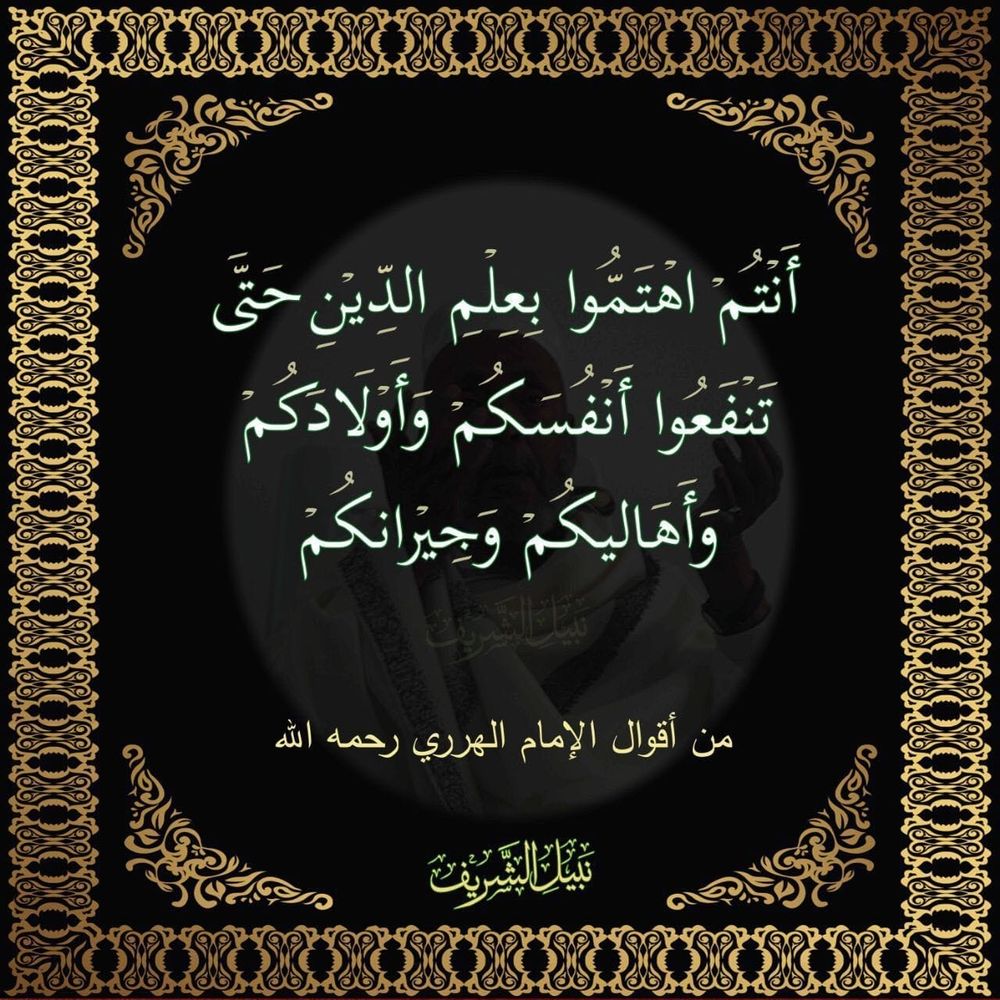 أَنْتُمْ اهْتَمُّوا بِعِلْمِ الدِّيْنِ حَتَّى
تَنْفَعُوا أَنْفُسَكُمْ وَأَوْلَادَكُمْ
وَأَهَاليكُمْ وَجِيْرانكُمْ
نبيل الشَّريف
من أقوال الإمام الهرري رحمه الله
نبيل الشَّريف